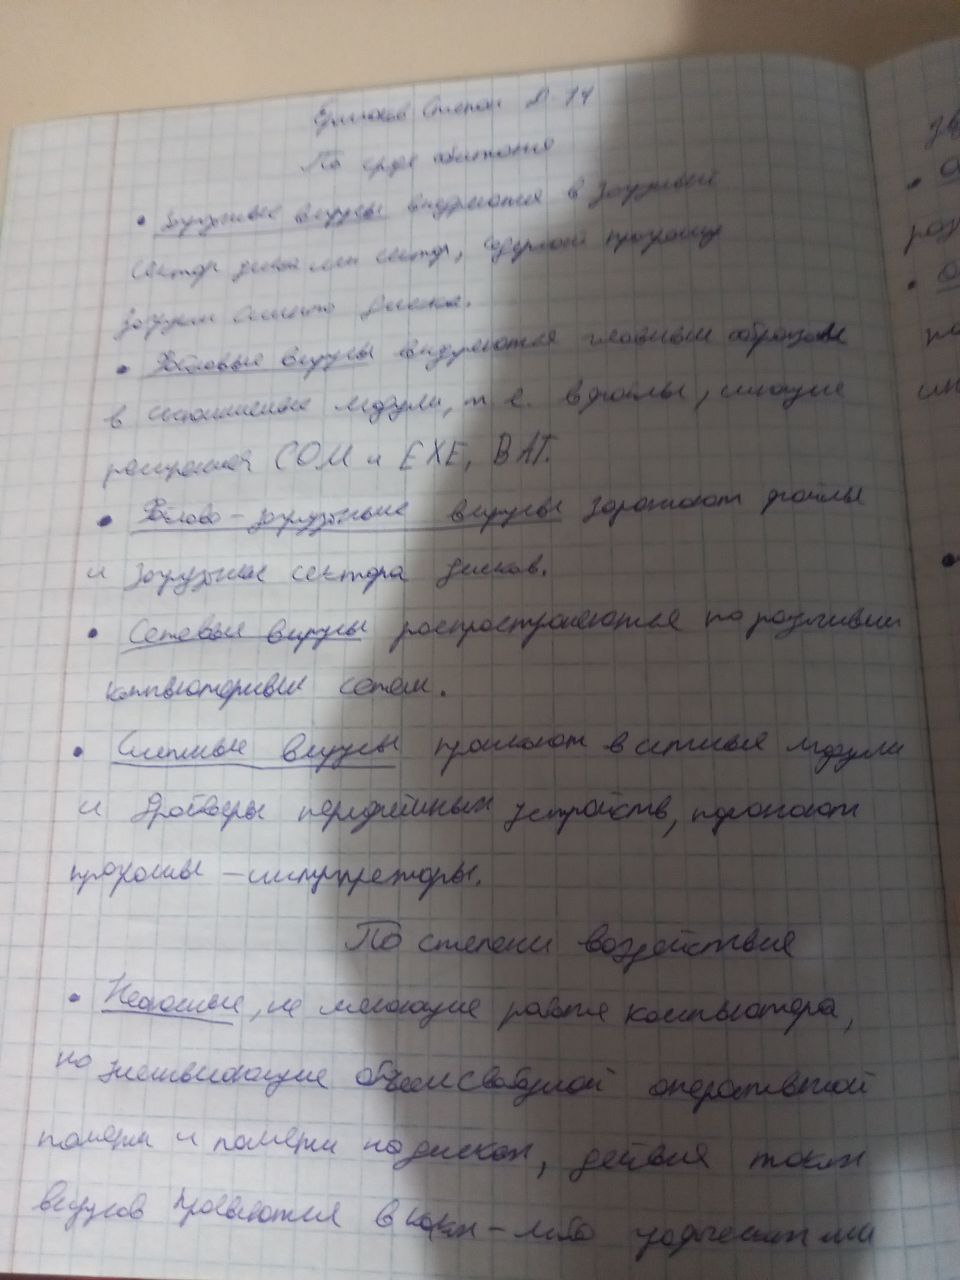 Степан
По среде обитания
• Загрузочные вирусы внедряются в загрузочный
сектор диска или сектор, содержащий программу
загрузки диска.
• Файловые вирусы внедряются главным образом
в исполняемые модули, т. е. в файлы, имеющие
расширения COM и EXE, BAT.
• Файлово-загрузочные вирусы заражают файлы
и загрузочные сектора дисков.
• Сетевые вирусы распространяются по различным
компьютерным сетям.
• Системные вирусы проникают в системные модули
и драйверы периферийных устройств, поражают
программы-интерпретаторы.
По степени воздействия
• Неопасные, не мешающие работе компьютера,
но уменьшающие объем свободной оперативной
памяти и памяти на дисках, действия таких
вирусов проявляются в каких-либо графических